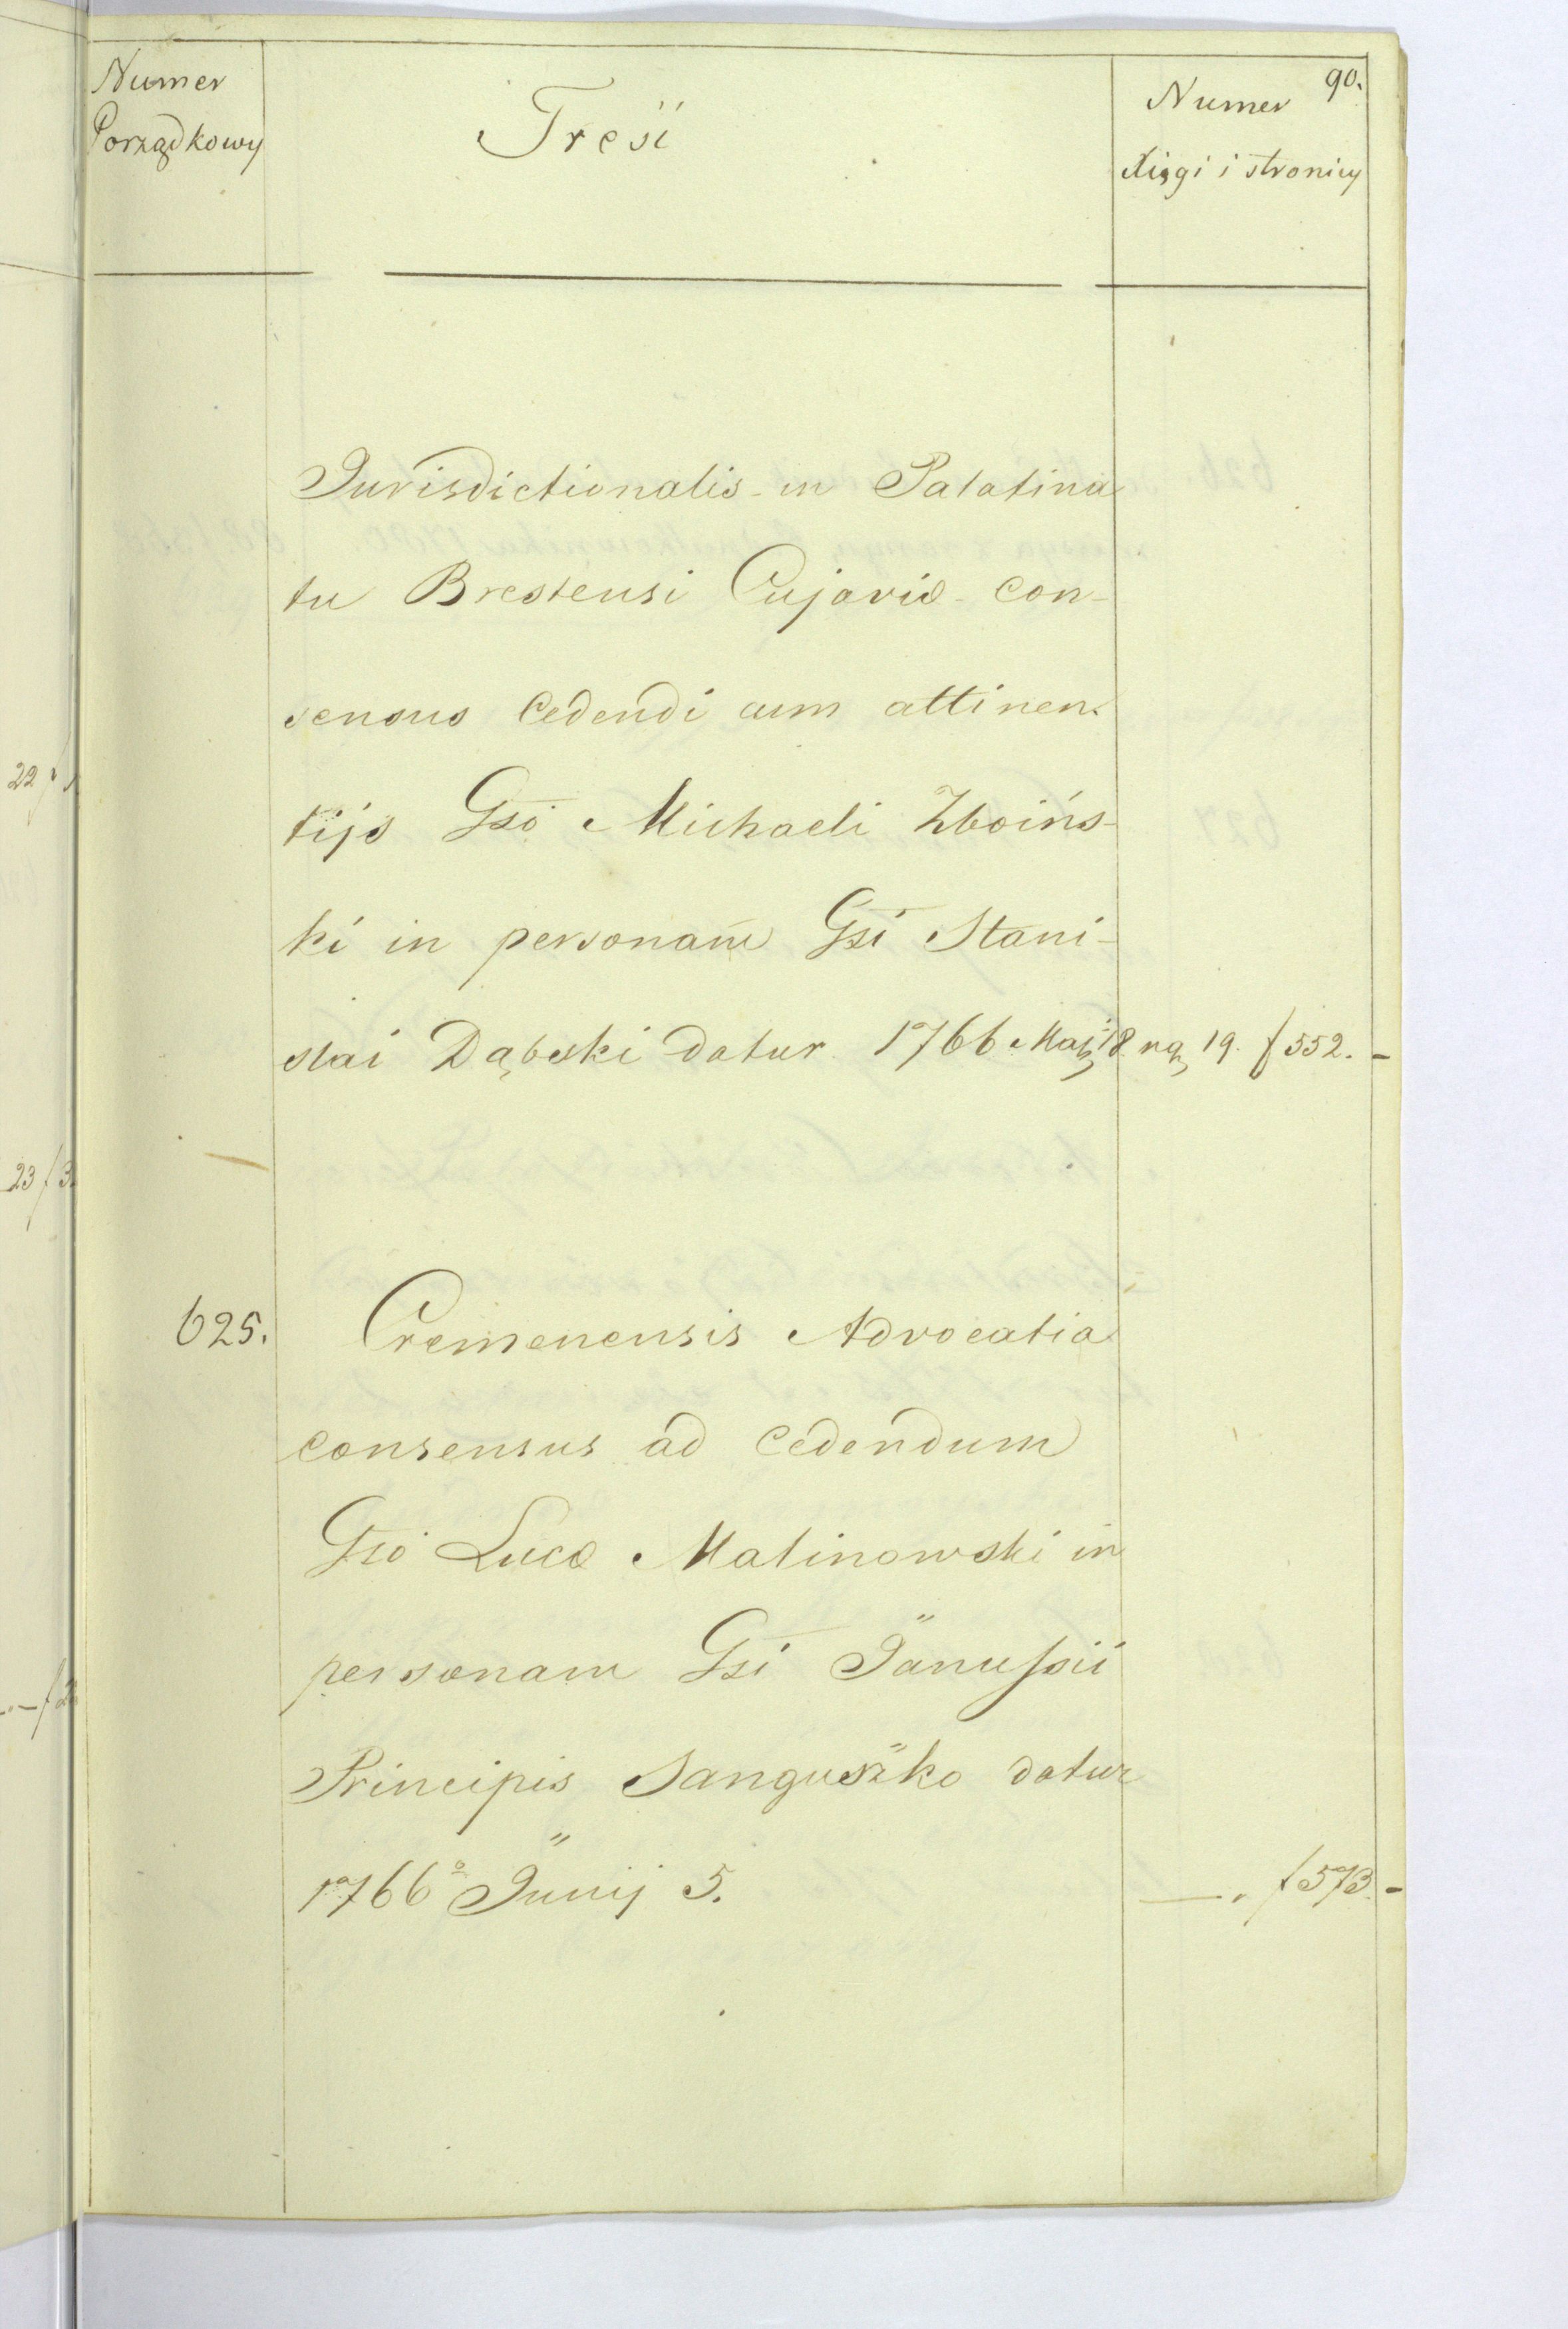 90.
Numer
Porządkowy
Treść
Numer
Xięgi i stronicy
Jurisdictionalis in Palatina
tu Brestensi Cujaviæ con-
sensus Cedendi cum attinen-
tijs Gso Michaeli Zboińs-
ki in personam Gsi Stani-
slai Dąbski datur 1766 Maj 18 19. f 552. -
625. Cremenensis Advocatia
consensus ad cedendum
Gso Lucæ Malinowski in
personam Gsi Janussii
Principis Sanguszko datur
1766o Junij 5. —. f 573 -